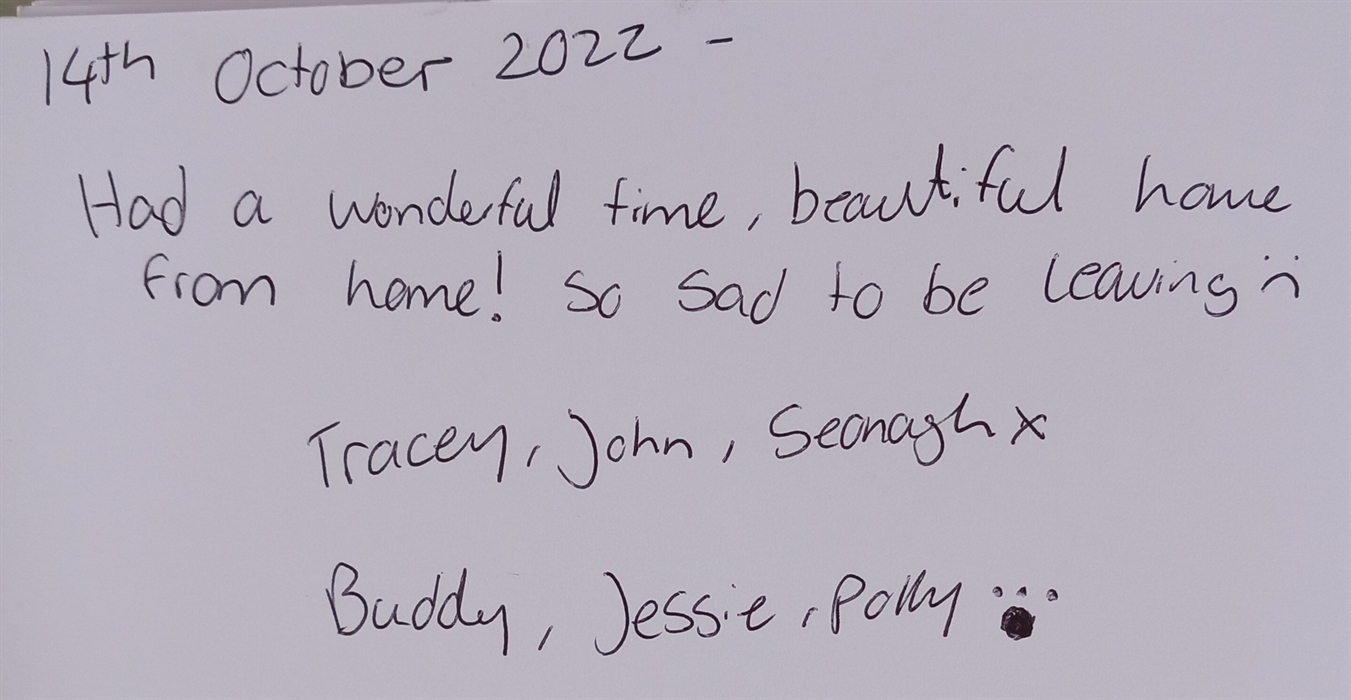 14th October 2022 -
Had a wonderful time, beautiful home
from home! So sad to be leaving :(
Tracey, John, Seonagh x
Buddy, Jessie, Polly